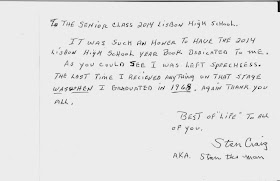 To THE SENIOR CLASS 2014 LISBON HIGH SCHOOL.
IT WAS SUCH AN HONER TO HAVE THE 2014
LISBON HIGH SCHOOL YEAR BOOK DEDICATED TO ME.
AS YOU COULD SEE I WAS LEFT SPEECHLESS.
THE LAST TIME I RECIEVED ANYTHING ON THAT STAGE
WAS WHEN I GRADUATED IN 1968. AGAIN THANK YOU
ALL.
"BEST OF LIFE" TO ALL
OF YOU.
Stan Craig
AKA. Stan the man